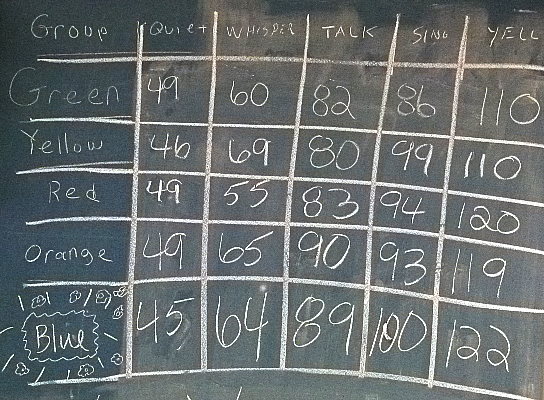 Group Quiet WHISPER TALK SING YELL
Green 49 60 82 86 110
Yellow 46 69 80 99 110
Red 49 55 83 94 120
Orange 49 65 90 93 119
Blue 45 64 89 100 122